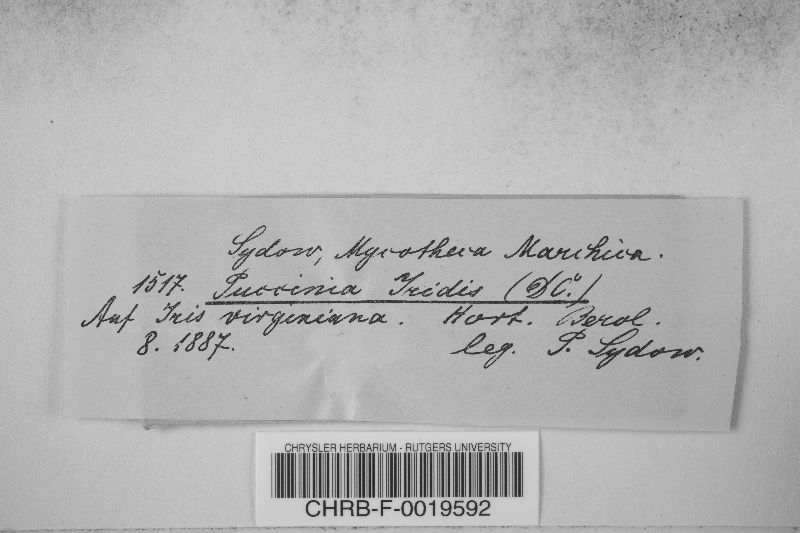 Sydow, Mycotheca Marchica.
1517. Puccinia Iridis (DC.)
Auf Iris virginiana. Hort. Berol.
8. 1887. leg. P. Sydow.
CHRYSLER HERBARIUM - RUTGERS UNIVERSITY
CHRB-F-0019592